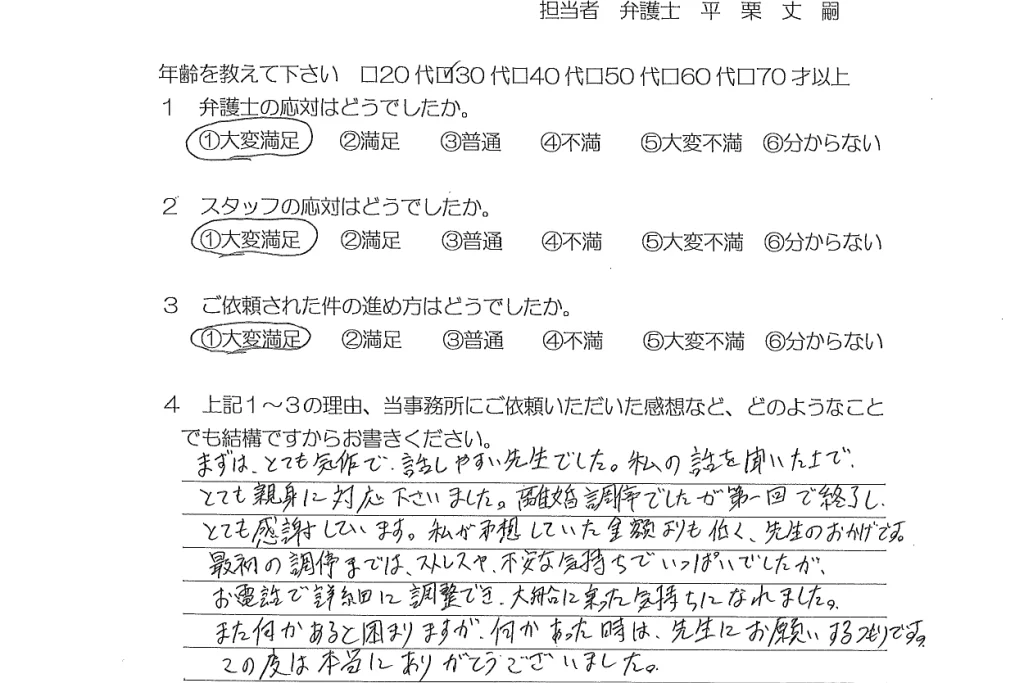 担当者　弁護士　平　栗　丈　嗣
年齢を教えて下さい　□20 代☑30 代□40 代□50 代□60 代□70 才以上
1　弁護士の応対はどうでしたか。
①大変満足　②満足　③普通　④不満　⑤大変不満　⑥分からない
2　スタッフの応対はどうでしたか。
①大変満足　②満足　③普通　④不満　⑤大変不満　⑥分からない
3　ご依頼された件の進め方はどうでしたか。
①大変満足　②満足　③普通　④不満　⑤大変不満　⑥分からない
4　上記1～3の理由、当事務所にご依頼いただいた感想など、どのようなこと
でも結構ですからお書きください。
まずは、とても気作で、話しやすい先生でした。私の話を聞いた上で、
とても親身に対応下さいました。離婚調停でしたが第一回で終了し、
とても感謝しています。私が予想していた金額よりも低く、先生のおかげです。
最初の調停までは、ストレスや、不安な気持ちでいっぱいでしたが、
お電話で詳細に調整でき、大船に乗った気持ちになれました。
また何かあると困りますが、何かあった時は、先生にお願いするつもりです。
この度は本当にありがとうございました。